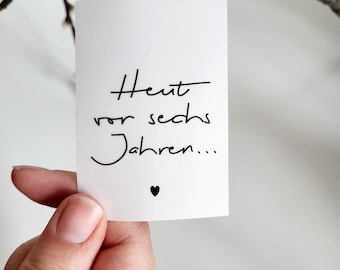 Heut
vor sechs
Jahren...